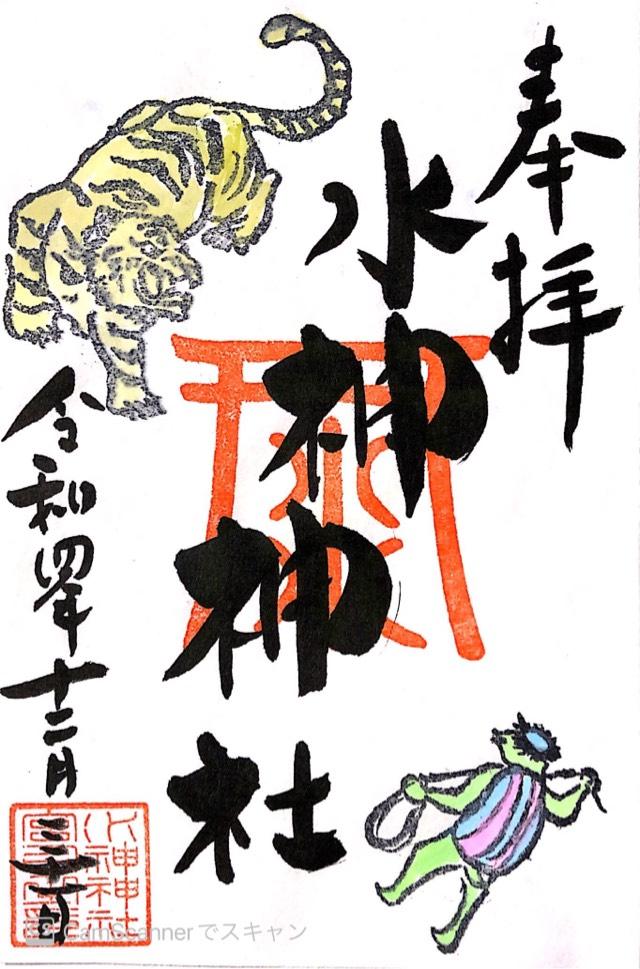 奉拝
水神神社
令和四年十二月
三十一日
水神神社
CamScannerでスキャン